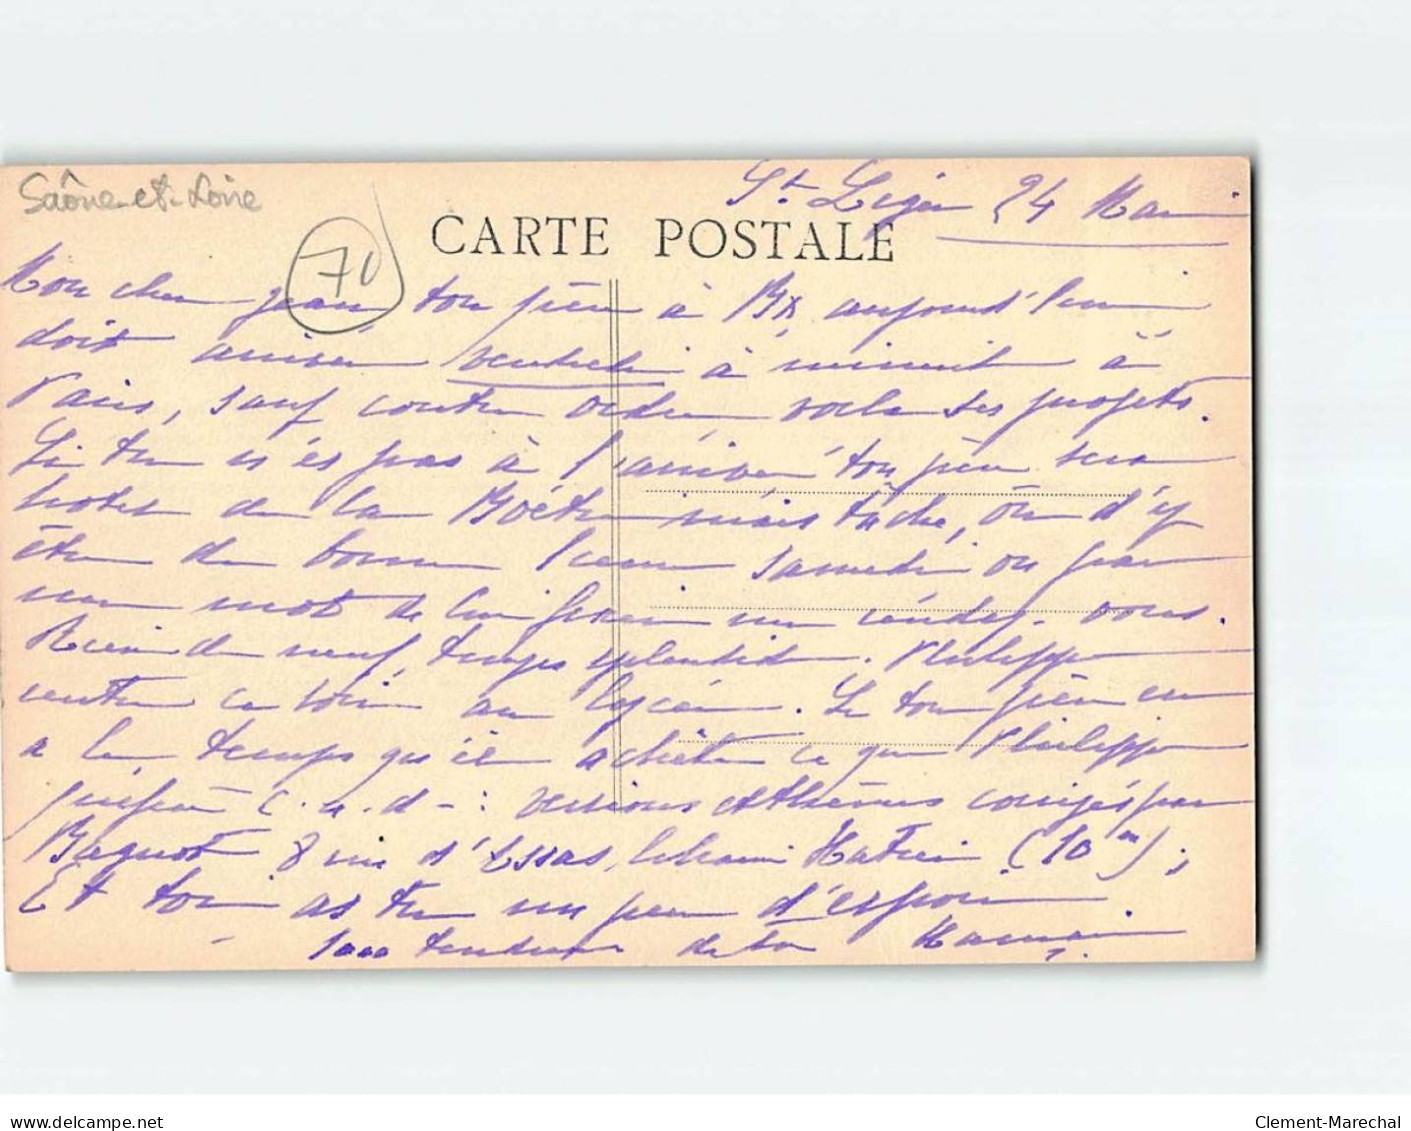 Saône-et-Loire
70
St Léger 24 Mai
CARTE POSTALE
Mon cher Jean, ton père à Bx, aujourd'hui
doit arriver vendredi à minuit à
Paris, sauf contre ordre, voila ses projets.
Si tu n'es pas à l'arrivée ton père sera
hotel de la Boétie mais tâche, ou d'y
être de bonne heure samedi ou par
un mot de lui fixer un rendez-vous.
Rien de neuf, temps splendide. Philippe
rentre ce soir au lycée. Si ton père en
a le temps qu'il achète ce que Philippe
c.a.d-: versions et thèmes corrigés par
8 rue d'Assas, librairie Hatier (10 );
Et toi as tu un peu d'espoir.
1000 tendresses de ta Maman
Clement-Marechal
www.delcampe.net